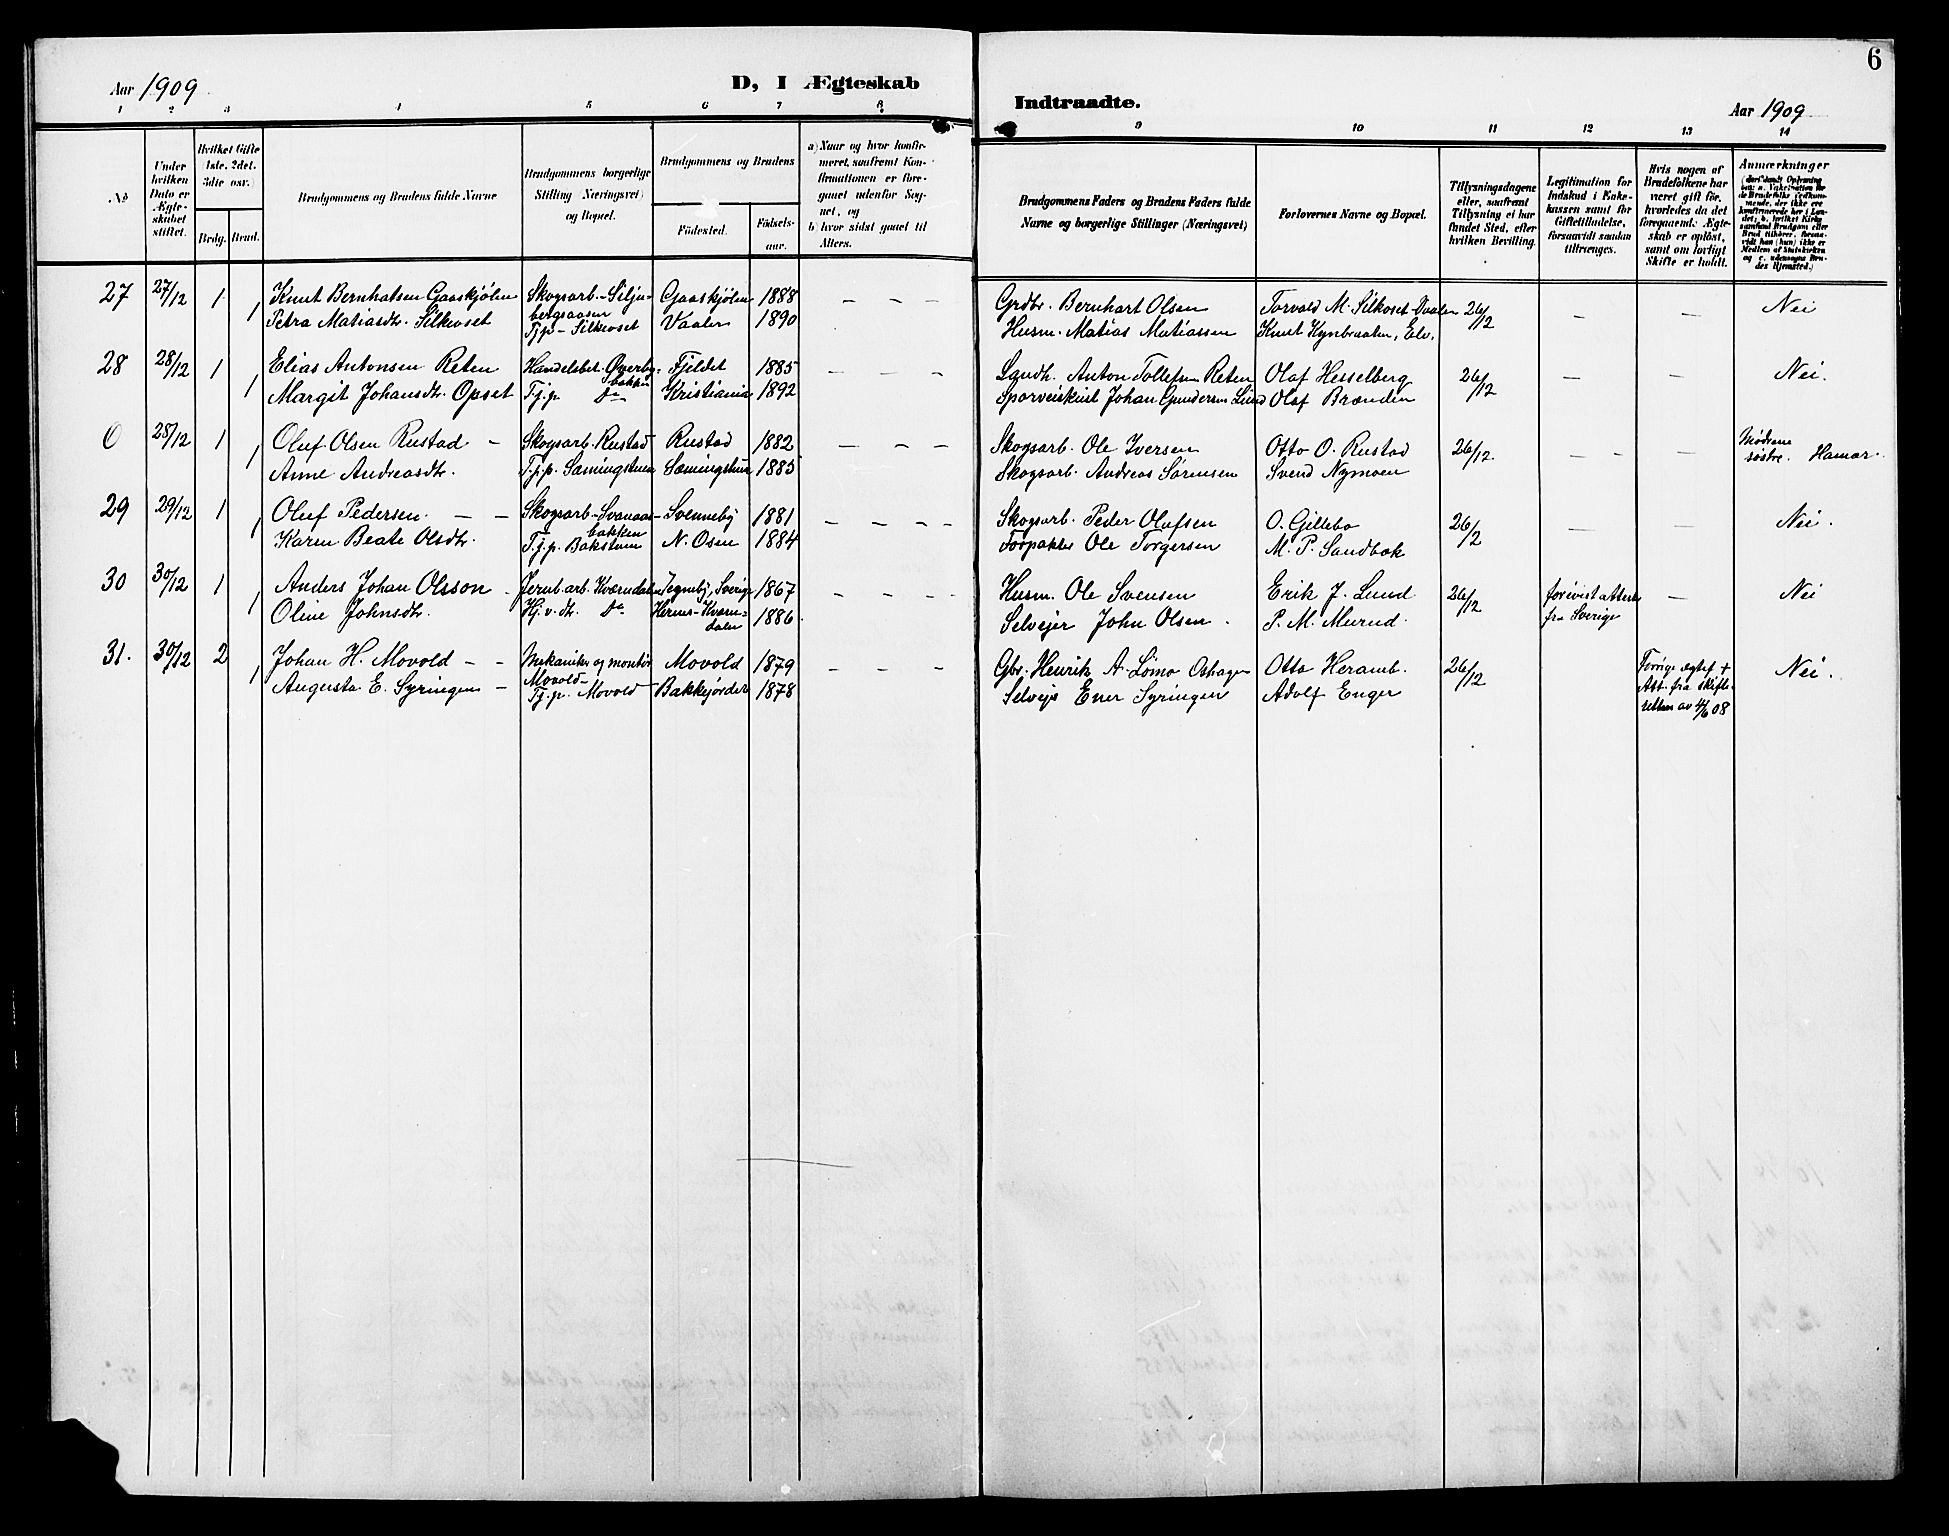 Aar 1909
D, I Ægteskab
1 2 3 4 5 6 7 8
No
Under hvilken Dato er Ægteskabet stiftet.
Hvilket Gifte 1ste, 2det, 3die osv.)
Brdg. Brud.
Brudgommens og Brudens fulde Navne
Brudgommens borgerlige Stilling (Næringsvei) og Bopæl.
Brudgommens og Brudens
Födested.
Födselsaar.
a) Naar og hvor konfirmeret, saafremt Konfirmationen er foregaaet udenfor Sognet, og
b) hvor sidst gaaet til Alters.
27 27/12 1 Knut Bernhatsen Gaaskjølen Skogsarb.-Silju- Gaaskjølen 1888 – – –
bergsaasen
1 Petra Matiasdtr. Silkoset Tj.p.-Silkoset Vaaler 1890
28 28/12 1 Elias Antonsen Reten Handelsbet. Øverby- Fjeldet 1885 – – –
bakken
1 Margit Johansdtr. Opset Tj.p. Do Kristiania 1892
0 28/12 1 Oluf Olsen Rustad – Skogsarb. Rustad Rustad 1882 – – –
1 Anne Andreasdtr. Tj.p. Sæmingstuen Sæmingstuen 1885
29 29/12 1 Oluf Pedersen. – – Skogsarb.-Svanaas- Svenneby 1881 – – – –
bakken
1 Karen Beate Olsdtr. Tj.p. Bakstuen N. Osen 1884
30 30/12 1 Anders Johan Olsson – Jernb.arb. Kværndalen Jegnebÿ, Sverige 1867
1 Oline Johnsdtr. Hj.v.dtr. Do Hernes-Kværn- 1886
dalen
31. 30/12 2 Johan H. Movold – – Mekaniker og montør Movold 1879 – – –
Movold
1 Augusta E. Syringen – Tj.p. Movold Bakkejordet 1878
6
Indtraadte.
Aar 1909
9 10 11 12 13 14
Brudgommens Faders og Brudens Faders fulde Navne og borgerlige Stillinger (Næringsvei)
Forlovernes Navne og Bopæl.
Tillysningsdagene eller, saafremt Tillysning ei har fundet Sted, efter hvilken Bevilling.
Legitimation for Indskud i Enkekassen samt for Giftetilladelse, forsaavidt saadan tiltrænges.
Hvis nogen af Brudefolkene har været gift för, hvorledes da det foregaaende Ægteskab er oplöst, samt om lovligt Skifte er holdt.
Anmærkninger
Grdbr. Bernhart Olsen Torvald M. Silkoset-Vaaler 26/12 – – Nei
Husm. Matias Matiassen Knut Kynbraaten, Elv.
Landh. Anton Tollefsen Reten Olaf Hesselberg 26/12 – – Nei.
Sporveiskusk Johan Gundersen Lund Olaf Brænden
Skogsarb. Ole Iversen Otto O. Rustad 26/12. – – Mødrene søstre. Hamar.
Skogsarb. Andreas Sørensen Svend Nymoen
Skogsarb. Peder Olafsen O. Gillebo 26/12 – – Nei.
Forpakter Ole Torgersen M. P. Sandbak
Husm. Ole Svensen Erik J. Lund 26/12 forevist attest – Nei
Selvejer John Olsen. P. M. Murud. fra Sverige
Gbr. Henrik A. Lømo Oshagen Otto Heramb. 26/12 Forrige egtef. + Nei.
Selvejer Ener Syringen Adolf Enger Att. fra skifte-
retten av 4/6 08